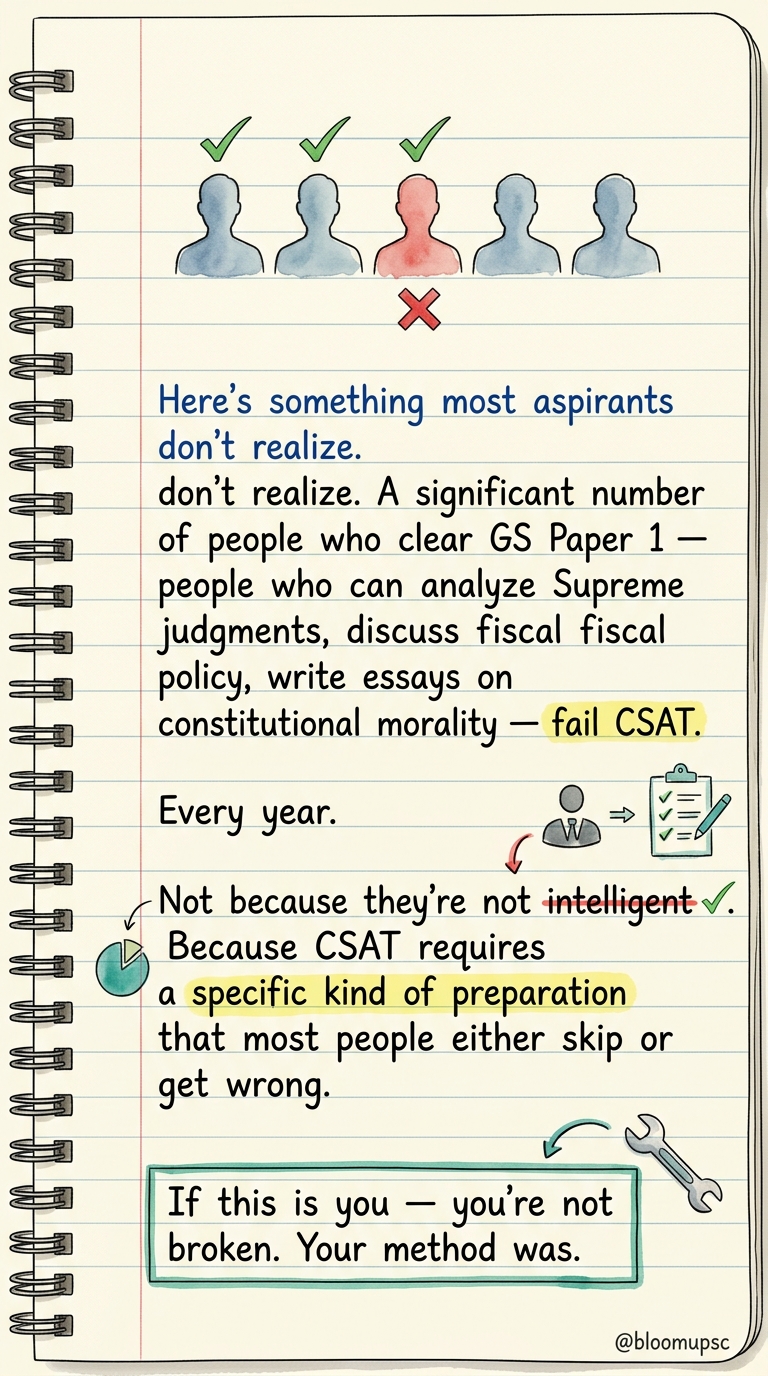 Here's something most aspirants
don't realize.
don't realize. A significant number
of people who clear GS Paper 1 —
people who can analyze Supreme
judgments, discuss fiscal fiscal
policy, write essays on
constitutional morality — fail CSAT.
Every year.
Not because they're not intelligent ✓.
Because CSAT requires
a specific kind of preparation
that most people either skip or
get wrong.
If this is you — you're not
broken. Your method was.
@bloomupsc